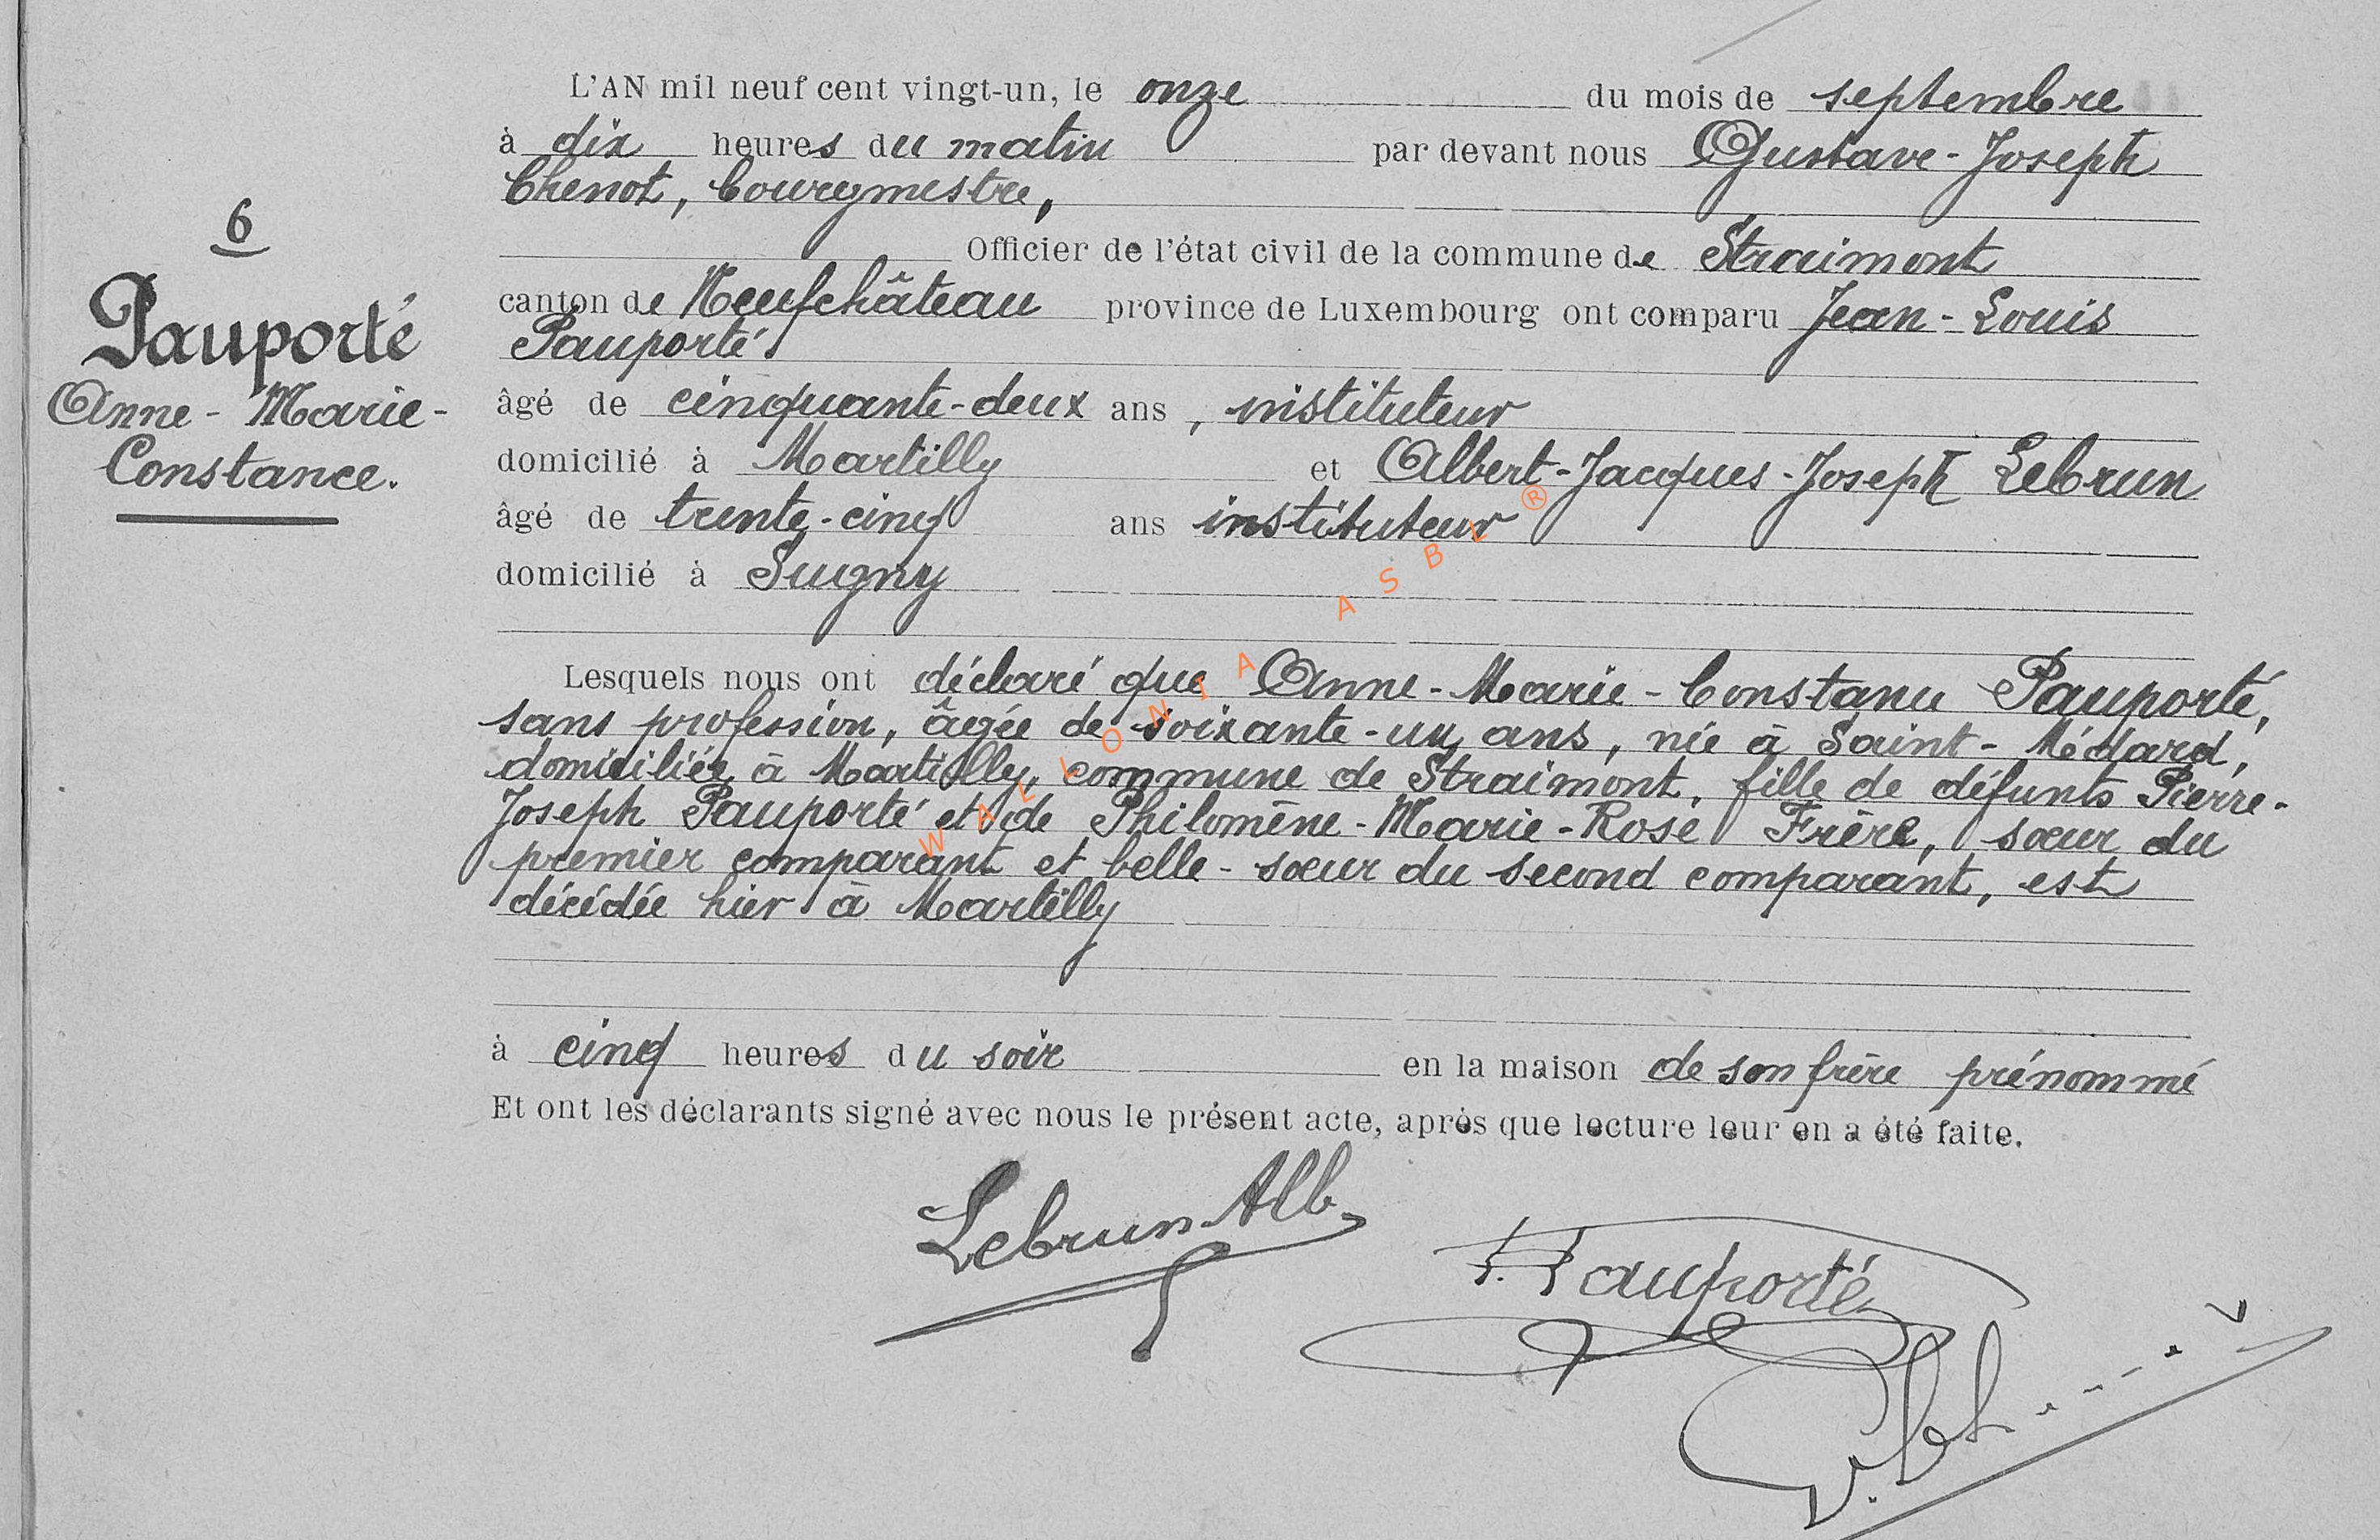 L'AN mil neuf cent vingt-un, le onze du mois de septembre
à dix heures du matin par devant nous Gustave-Joseph
Chenot, bourgmestre,
Officier de l'état civil de la commune de Straimont
canton de Neufchâteau province de Luxembourg ont comparu Jean-Louis
Pauporté
âgé de cinquante-deux ans, instituteur
domicilié à Martilly et Albert-Jacques-Joseph Lebrun
âgé de trente-cinq ans instituteur
domicilié à Sugny
6
Pauporté
Anne-Marie-
Constance.
Lesquels nous ont déclaré que Anne-Marie-Constance Pauporté,
sans profession, âgée de soixante-un ans, née à Saint-Médard,
domiciliée à Martilly, commune de Straimont, fille de défunts Pierre-
Joseph Pauporté et de Philomène-Marie-Rose Frère, sœur du
premier comparant et belle-sœur du second comparant, est
décédée hier à Martilly
à cinq heures du soir en la maison de son frère prénommé
Et ont les déclarants signé avec nous le présent acte, après que lecture leur en a été faite.
Lebrun Alb
Pauporté
WALLONIA ASBL ®